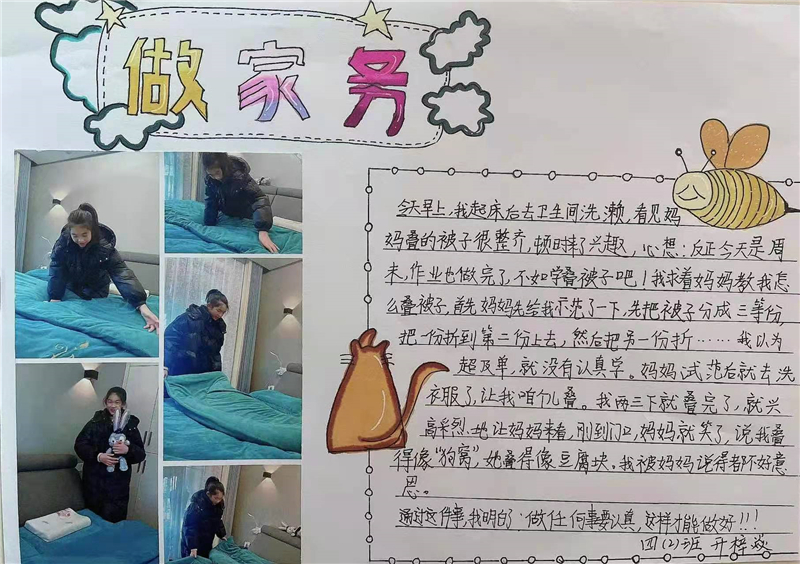 做家务
今天早上,我起床后去卫生间洗濑,看见妈
妈叠的被子很整齐,顿时来了兴趣,心想:反正今天是周
末,作业也做完了,不如学叠被子吧!我求着妈妈教我怎
么叠被子,首先妈妈先给我示范了一下,先把被子分成三等份,
把一份折到第二份上去,然后把另一份折……我以为
超及单,就没有认真学。妈妈试范后就去洗
衣服了,让我咱个儿叠。我两三下就叠完了,就兴
高采烈地让妈妈来看,刚到门口,妈妈就笑了,说我叠
得像“狗窝”,她叠得像豆腐块。我被妈妈说得都不好意
思。
通过这件事,我明白了:做任何事要认真,这样才能做好!!!
四(2)班 开梓